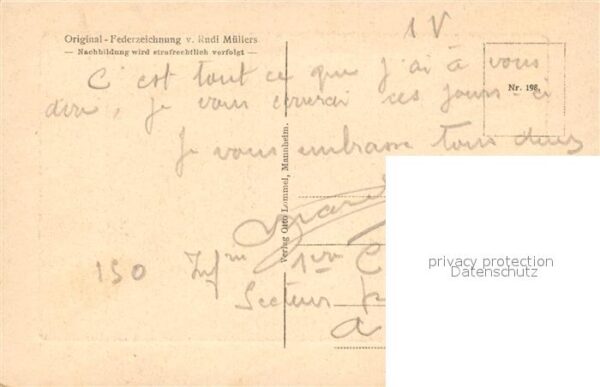 Original-Federzeichnung v. Rudi Müllers
— Nachbildung wird strafrechtlich verfolgt —
1 V
Nr. 198.
C'est tout ce que j'ai à vous
dire, je vous ces jours-ci
Je vous embrasse tous deux
Verlag Otto Lommel, Mannheim.
150 Inf 1re C
Secteur
a
privacy protection
Datenschutz